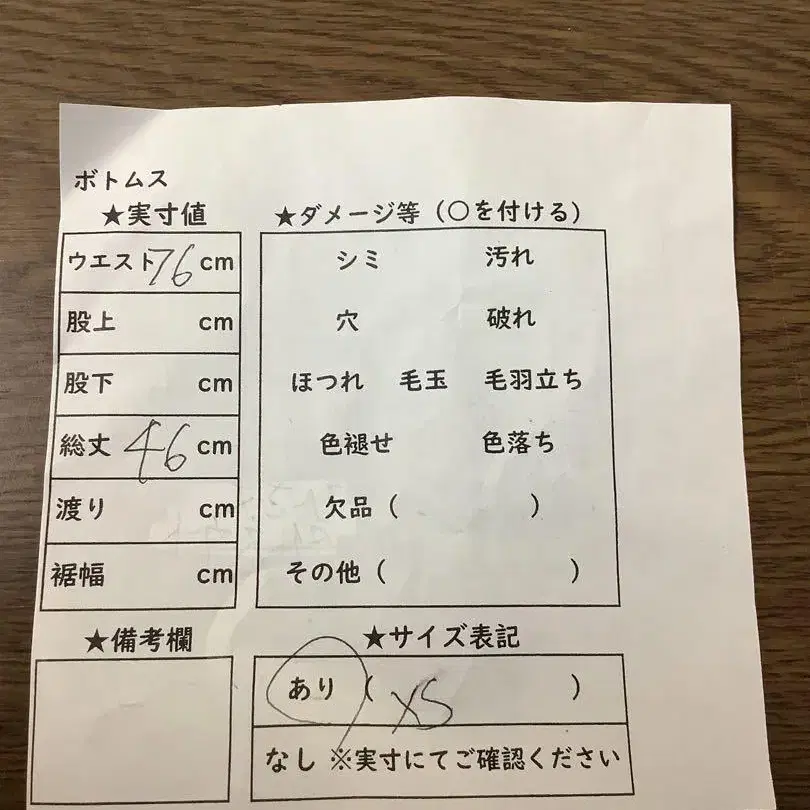 ボトムス
★実寸値
ウエスト76cm
股上 cm
股下 cm
総丈 46 cm
渡り cm
裾幅 cm
★備考欄
★ダメージ等（○を付ける）
シミ 汚れ
穴 破れ
ほつれ 毛玉 毛羽立ち
色褪せ 色落ち
欠品（ ）
その他（ ）
★サイズ表記
あり（ XS ）
なし ※実寸にてご確認ください